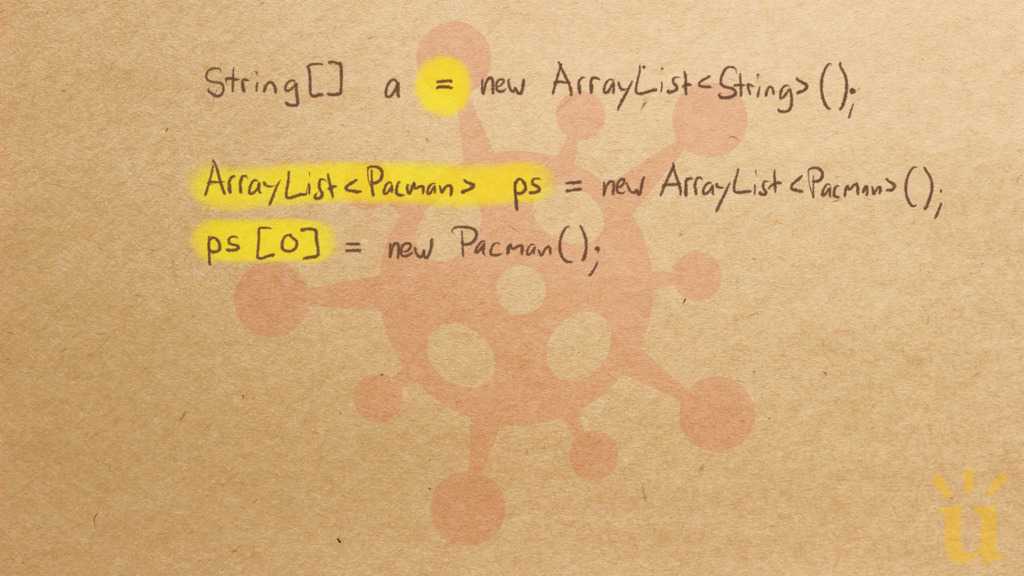 String[] a = new ArrayList<String>();
ArrayList<Pacman> ps = new ArrayList<Pacman>();
ps[0] = new Pacman();
ü